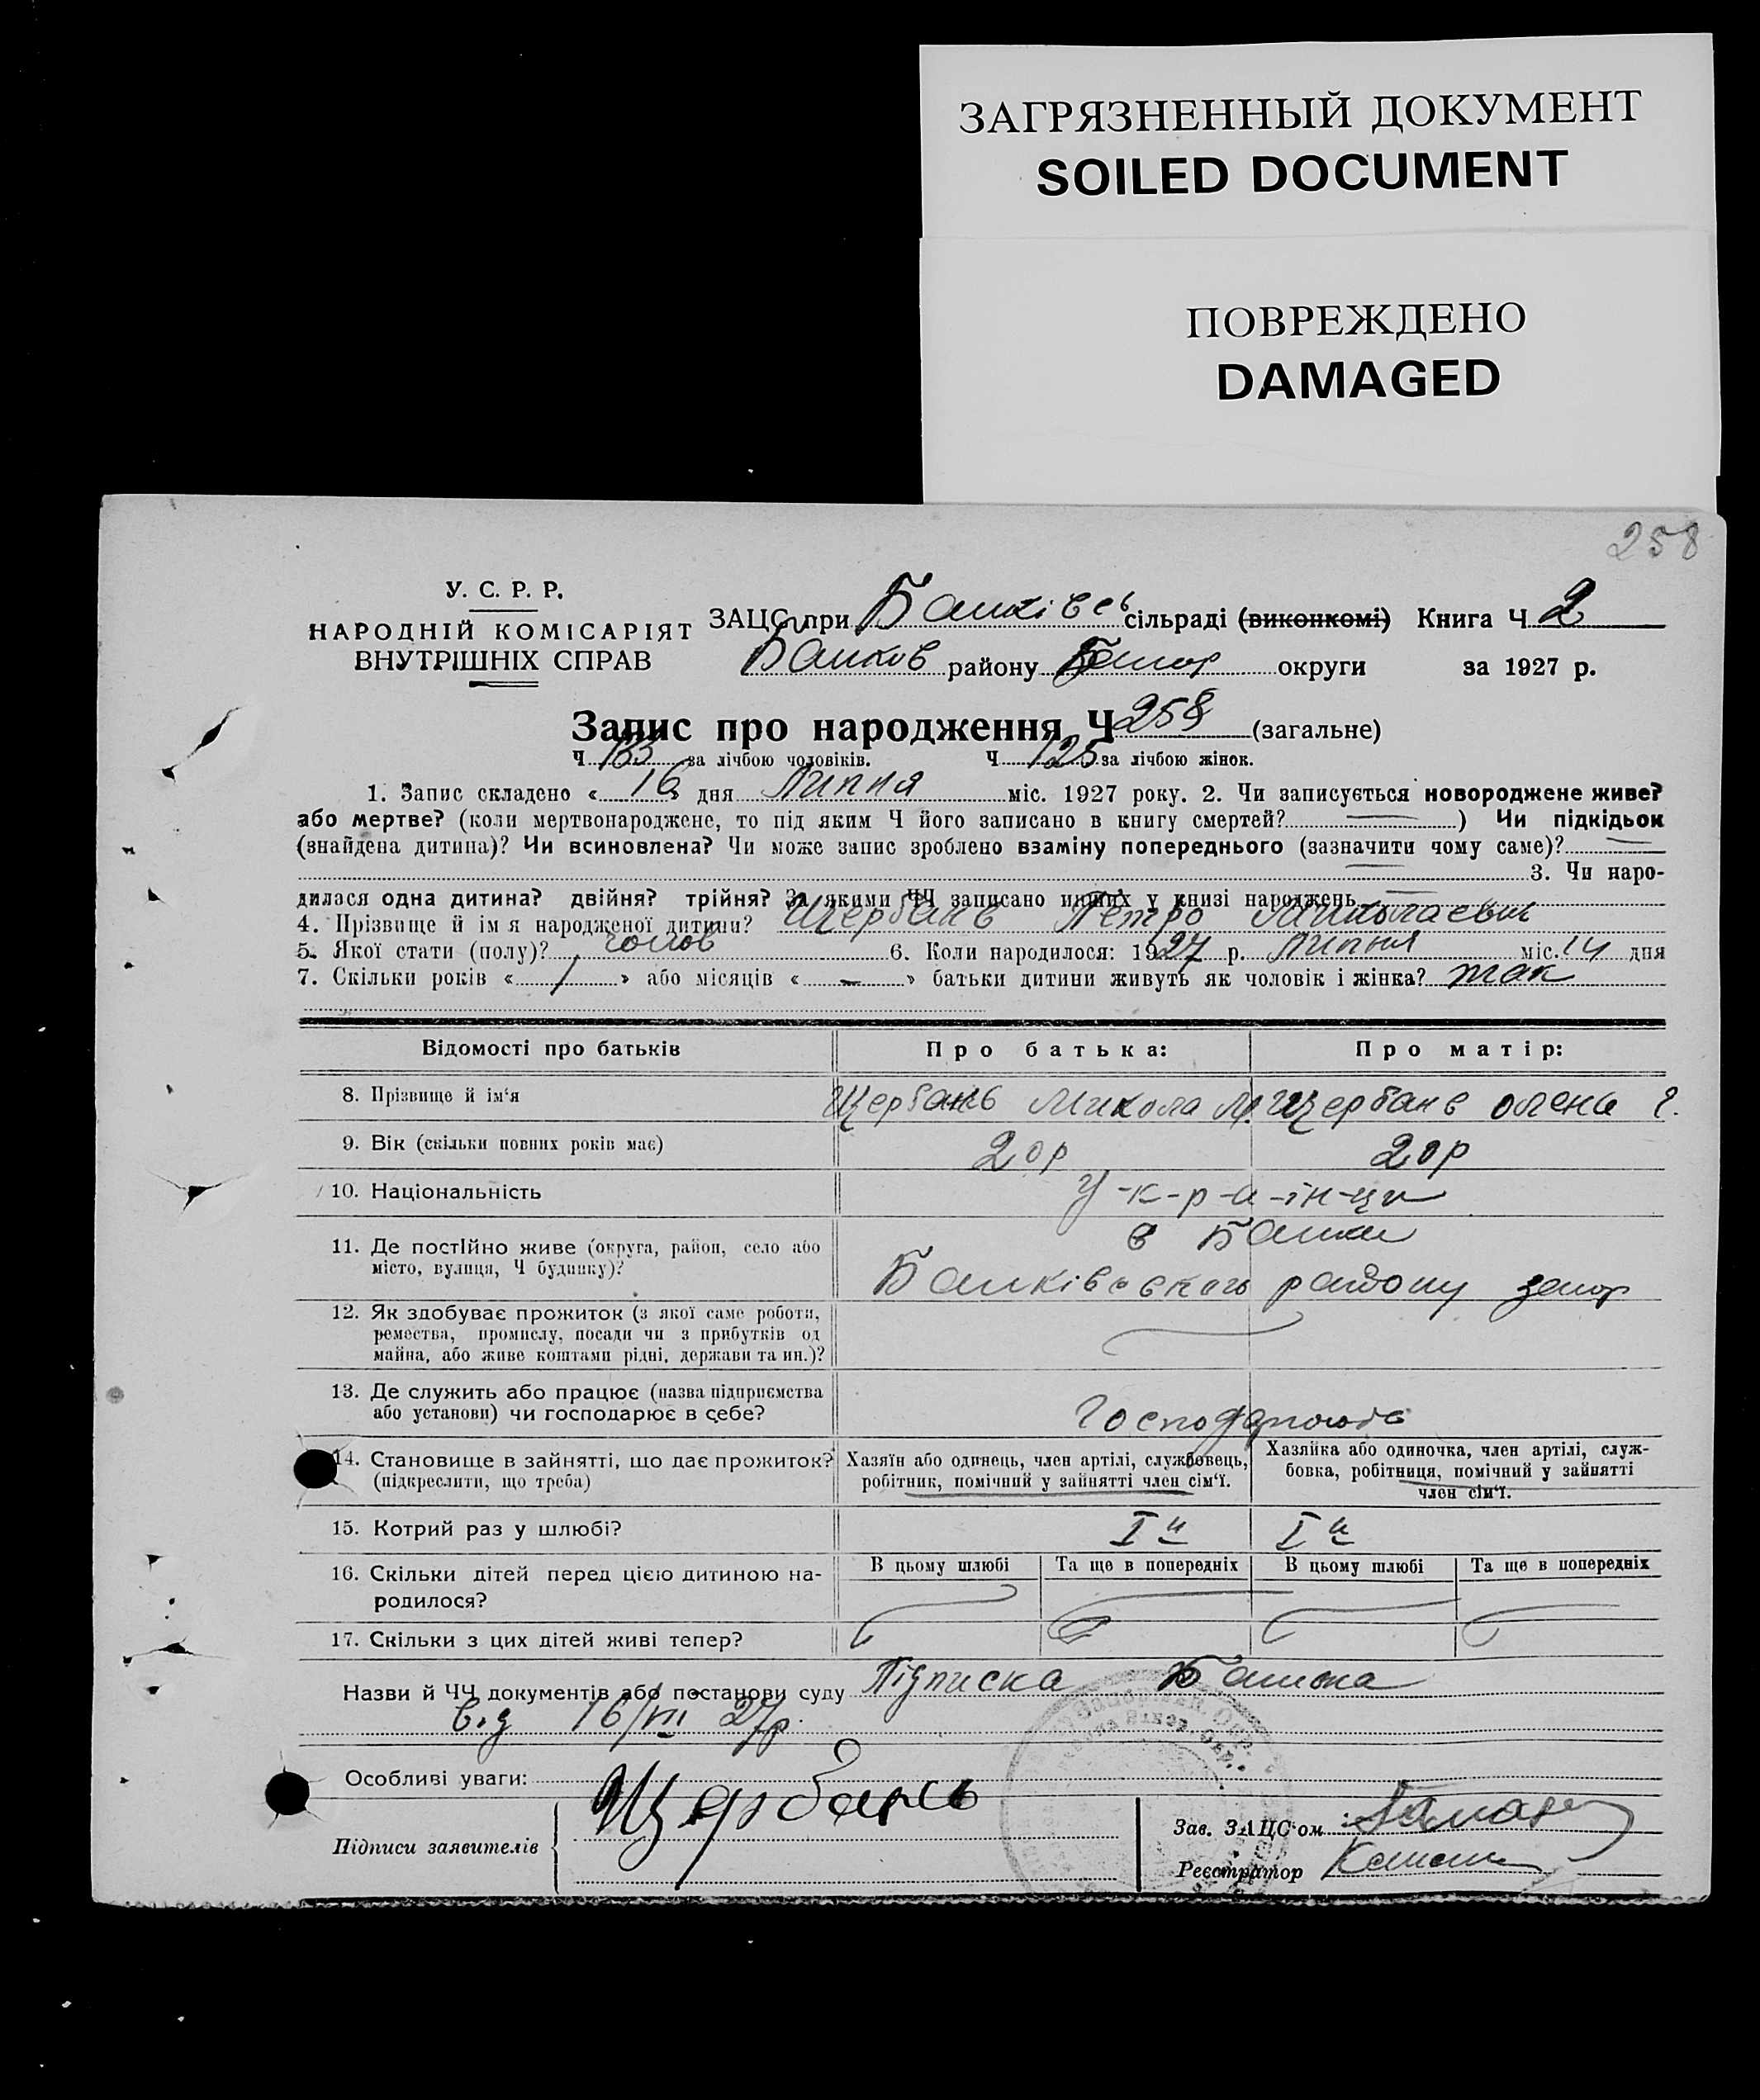 ЗАГРЯЗНЕННЫЙ ДОКУМЕНТ
SOILED DOCUMENT
ПОВРЕЖДЕНО
DAMAGED
258
У. С. Р. Р.
НАРОДНІЙ КОМІСАРІЯТ
ВНУТРІШНІХ СПРАВ
ЗАЦС при сільраді (виконкомі) Книга Ч 2
району округи за 1927 р.
Запис про народження Ч 258 (загальне)
Ч 133 за лічбою чоловіків. Ч 125 за лічбою жінок.
1. Запис складено « 16 » дня Липня міс. 1927 року. 2. Чи записується новороджене живе?
або мертве? (коли мертвонароджене, то під яким Ч його записано в книгу смертей? ) Чи підкідьок
(знайдена дитина)? Чи всиновлена? Чи може запис зроблено взаміну попереднього (зазначити чому саме)?
3. Чи наро-
дилася одна дитина? двійня? трійня? За якими ЧЧ записано инших у книзі народжень
4. Прізвище й ім я народженої дитини? Щербань Петро Миколаевич
5. Якої стати (полу)? чолов 6. Коли народилося: 1927 р. Липня міс. 14 дня
7. Скільки років « / » або місяців « – » батьки дитини живуть як чоловік і жінка? так
Відомості про батьків Про батька: Про матір:
8. Прізвище й ім'я Щербань Микола М. Щербань Олена Г.
9. Вік (скільки повних років має) 20р 20р
10. Національність У-к-р-а-їн-ци
11. Де постійно живе (округа, район, село або
місто, вулиця, Ч будинку)?
району запор
12. Як здобуває прожиток (з якої саме роботи,
ремества, промислу, посади чи з прибутків од
майна, або живе коштами рідні, держави та ин.)?
13. Де служить або працює (назва підприємства
або установи) чи господарює в себе? Господарюють
14. Становище в зайнятті, що дає прожиток?
(підкреслити, що треба)
Хазяїн або одинець, член артілі, службовець,
робітник, помічний у зайнятті член сім'ї.
Хазяйка або одиночка, член артілі, служ-
бовка, робітниця, помічний у зайнятті
член сім'ї.
15. Котрий раз у шлюбі? I й I й
16. Скільки дітей перед цією дитиною на-
родилося?
В цьому шлюбі Та ще в попередніх В цьому шлюбі Та ще в попередніх
17. Скільки з цих дітей живі тепер?
Назви й ЧЧ документів або постанови суду Підписка
від 16/VII 27р.
Особливі уваги:
Підписи заявителів Щербань
Зав. ЗАЦС'ом
Реєстратор